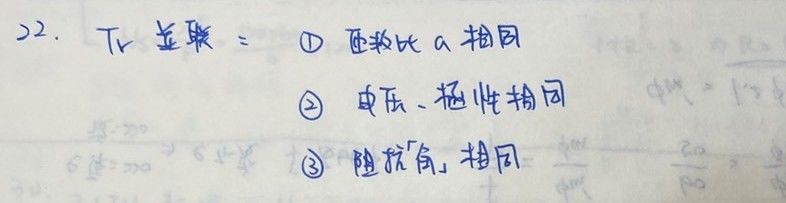 22. Tr 並联 = ① 匝数比 a 相同
② 电压、極性相同
③ 阻抗「角」相同